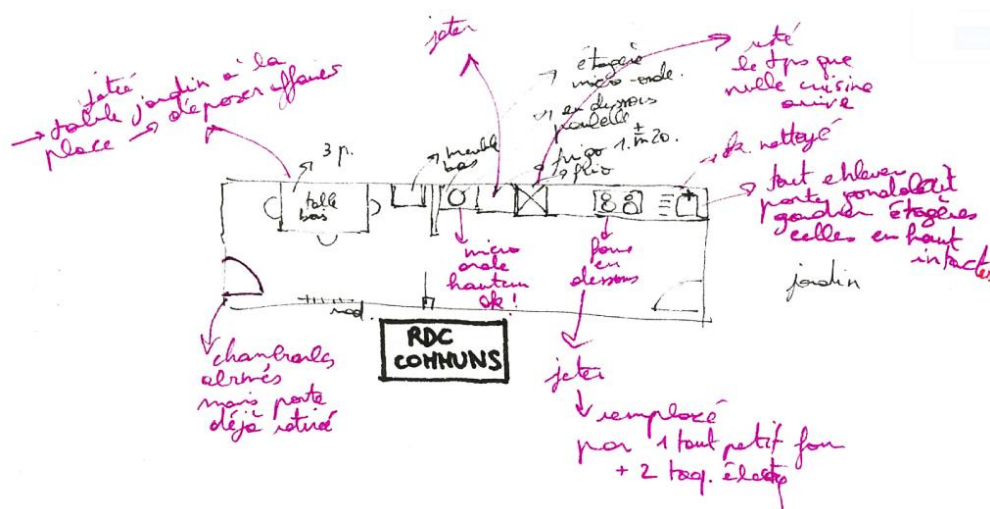 jeter
jetée
→ table jardin à la
place → déposer affaires
étagère
micro-onde.
en dessous
poubelle
frigo 1.m20.
± 
frigo
resté
le tps que
nvlle cuisine
arrive
ok. nettoyé
3 p.
meuble
bas
table
bois
tout enlever
porte gondolait
garder étagères
celles en haut
intactes
micro
onde
hauteur
ok!
four
en
dessous
jardin
rad.
RDC
COMMUNS
chambranles
abimés
mais porte
déjà retiré
jeter
remplacé
par 1 tout petit four
+ 2 taq. électr